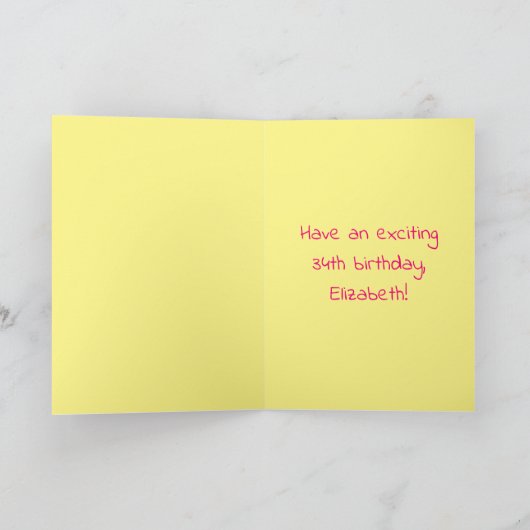 Have an exciting
34th birthday,
Elizabeth!